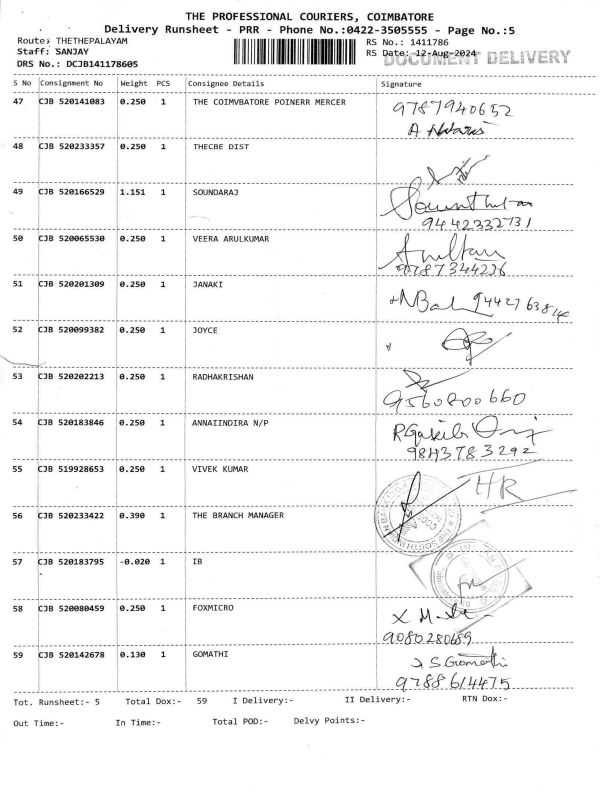 THE PROFESSIONAL COURIERS, COIMBATORE
Delivery Runsheet - PRR - Phone No.:0422-3505555 - Page No.:5
Route: THETHEPALAYAM
Staff: SANJAY
DRS No.: DCJB141178605
RS No.: 1411786
RS Date: 12-Aug-2024
DOCUMENT DELIVERY
S No Consignment No Weight PCS Consignee Details Signature
47 CJB 520141083 0.250 1 THE COIMVBATORE POINERR MERCER 9787940652
A
48 CJB 520233357 0.250 1 THECBE DIST
49 CJB 520166529 1.151 1 SOUNDARAJ
9442332731
50 CJB 520065530 0.250 1 VEERA ARULKUMAR
9787344226
51 CJB 520201309 0.250 1 JANAKI
52 CJB 520099382 0.250 1 JOYCE
53 CJB 520202213 0.250 1 RADHAKRISHAN
9560800660
54 CJB 520183846 0.250 1 ANNAIINDIRA N/P
9843783292
55 CJB 519928653 0.250 1 VIVEK KUMAR HR
56 CJB 520233422 0.390 1 THE BRANCH MANAGER
57 CJB 520183795 -0.020 1 IB
58 CJB 520080459 0.250 1 FOXMICRO
59 CJB 520142678 0.130 1 GOMATHI S Gomathi
9788614475
Tot. Runsheet:- 5 Total Dox:- 59 I Delivery:- II Delivery:- RTN Dox:-
Out Time:- In Time:- Total POD:- Delvy Points:-